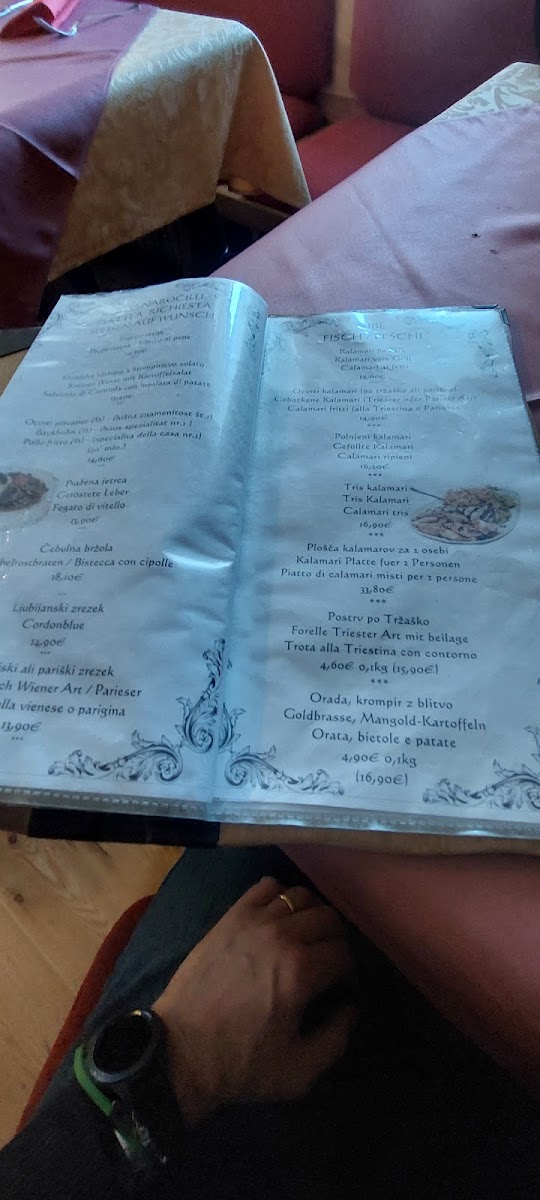 NAROČILU
RICHIESTA
SPEISEN AUF WUNSCH
pepe
solato
Kartoffelsalat
insalata di patate
(hišna znamenitost št.1)
Backhuhn (½) - (haus spezialitat nr.1)
Pollo fritto (½) - (specialita della casa nr.1)
min.)
14,60€
Pražena jetrca
Geröstete Leber
Fegato di vitello
13,90€
***
Čebulna bržola
/ Bistecca con cipolle
18,10€
Ljubljanski zrezek
Cordonblue
14,90€
***
ali pariški zrezek
Wiener Art / Parieser
alla vienese o parigina
13,90€
***
FISCH / PESCHE
Kalamari
Kalamari vom Grill
Calamari ai ferri
14,60€
Ocvrti kalamari (po tržaško ali pariško)
Gebackene Kalamari (Triester oder Pariser Art)
Calamari fritti (alla Triestina o Parigina)
14,90€
***
Polnjeni kalamari
Gefüllte Kalamari
Calamari ripieni
16,20€
***
Tris kalamari
Tris Kalamari
Calamari tris
16,90€
***
Plošča kalamarov za 2 osebi
Kalamari Platte fuer 2 Personen
Piatto di calamari misti per 2 persone
33,80€
***
Postrv po Tržaško
Forelle Triester Art mit beilage
Trota alla Triestina con contorno
4,60€ 0,1kg (15,90€)
***
Orada, krompir z blitvo
Goldbrasse, Mangold-Kartoffeln
Orata, bietole e patate
4,90€ 0,1kg
(16,90€)